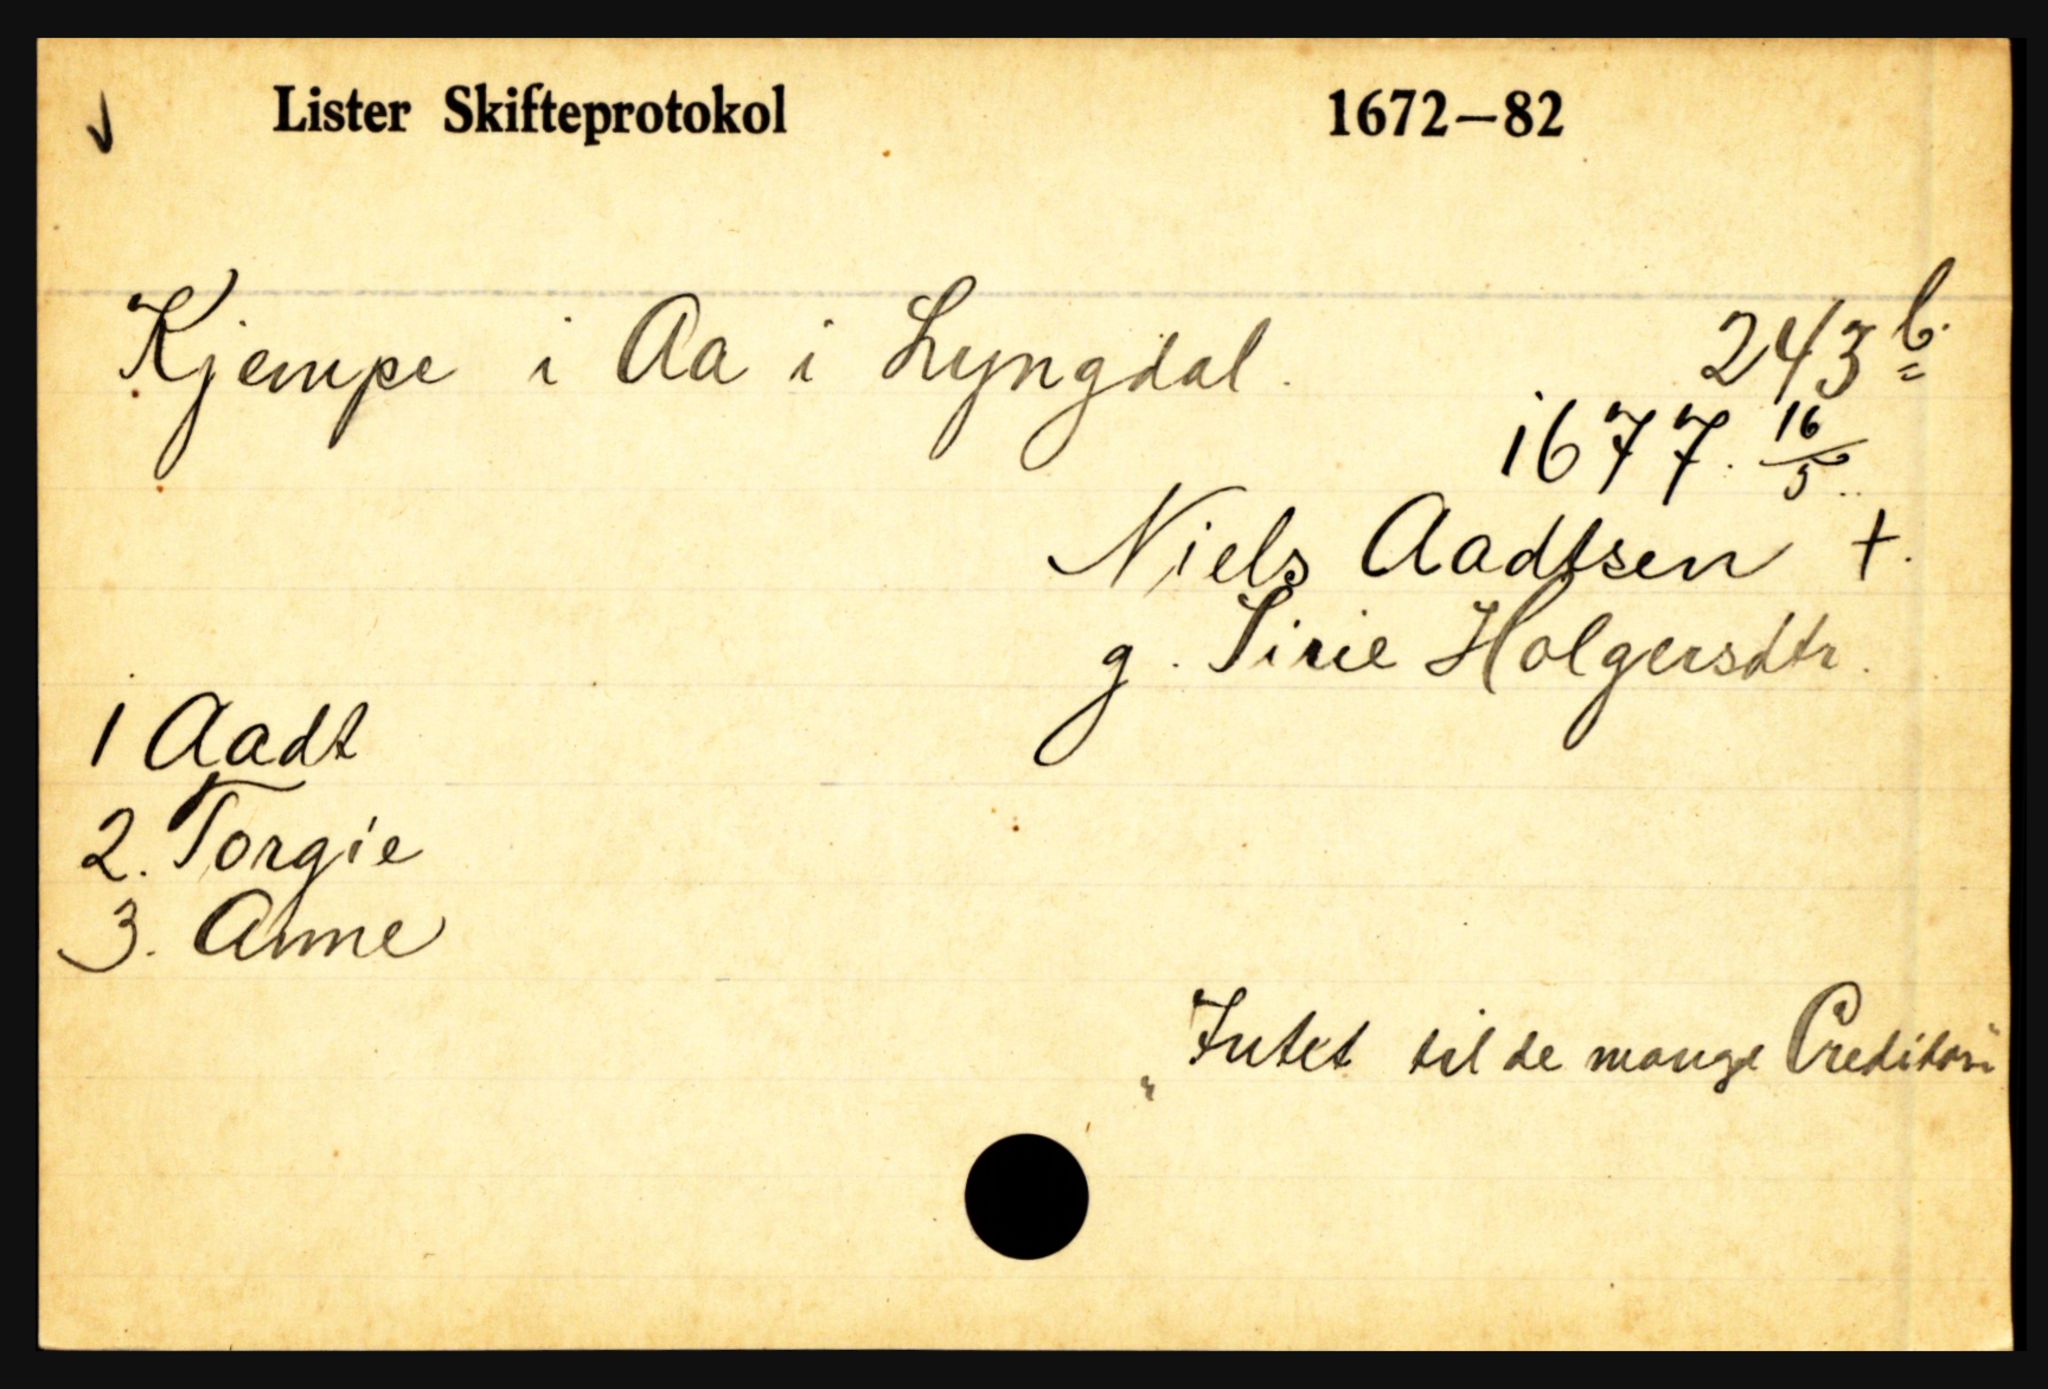 Lister Skifteprotokol 1672–82
Kjempe i Aa i Lyngdal. 243 b.
1677. 16/5.
Niels Aadtsen +.
g. Sirie Holgersdtr.
1 Aadt
2. Torgie
3. Anne
„Intet til de mange Creditori"